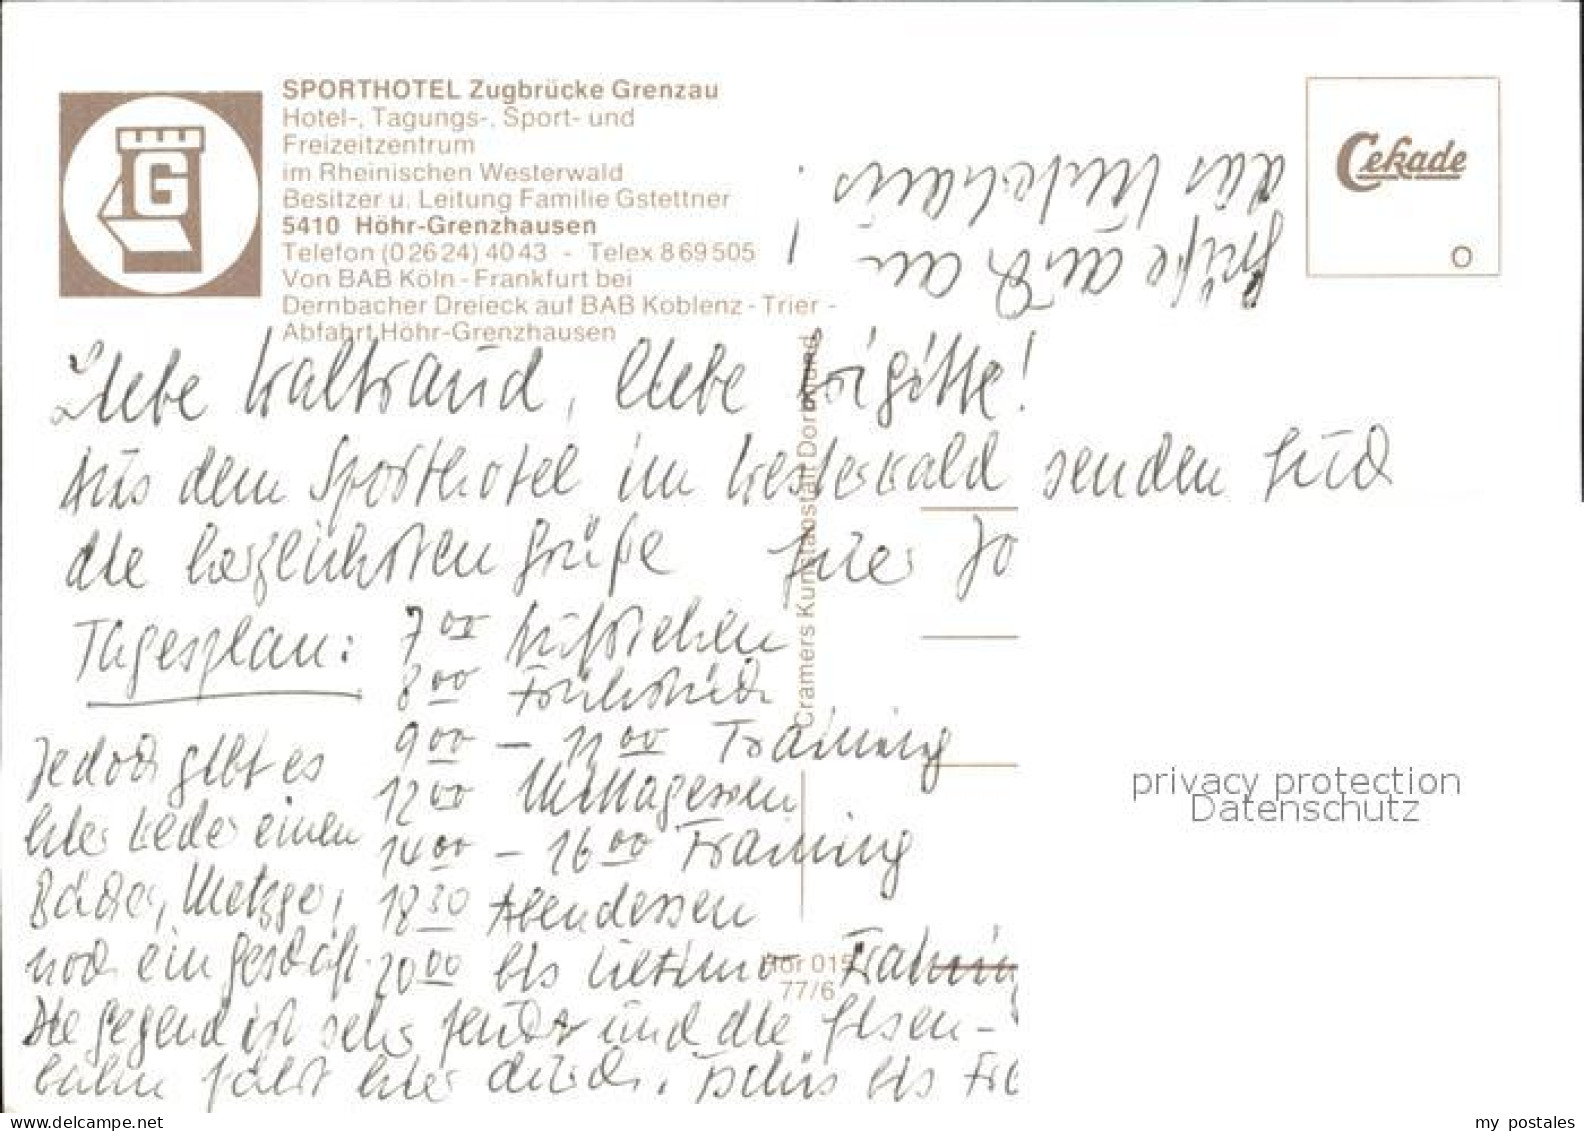 SPORTHOTEL Zugbrücke Grenzau
Hotel-, Tagungs-, Sport- und
Freizeitzentrum
im Rheinischen Westerwald
Besitzer u. Leitung Familie Gstettner
5410 Höhr-Grenzhausen
Telefon (02624) 4043 - Telex 869505
Von BAB Köln - Frankfurt bei
Dernbacher Dreieck auf BAB Koblenz - Trier -
Abfahrt Höhr-Grenzhausen
G
Cekade
Grüße auch an
das !
Liebe Waltraud, liebe Brigitte!
Aus dem Sporthotel im Westerwald senden Euch
die herzlichsten Grüße Eure Jo
Tagesplan: 7 00 Aufstehen
8 00 Frühstück
9 00 - 11 00 Training
12 00 Mittagessen
14 00 - 16 00 Training
18 30 Abendessen
20 00 bis ultimo Training
Jedoch gibt es
hier weder einen
Bäcker, Metzger,
noch ein Geschäft.
Die Gegend ist sehr feucht und die Eisen-
bahn fährt hier durch. Tschüs bis
Cramers Kunstanstalt Dortmund
Hör 015
77/6
privacy protection
Datenschutz
my postales